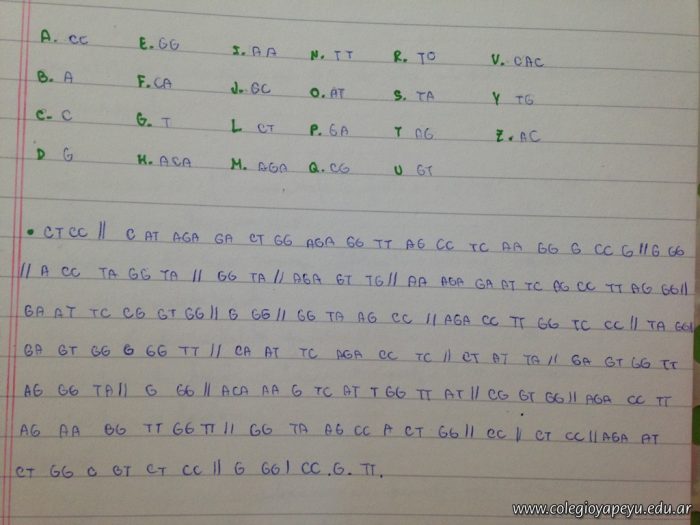 A. CC E. GG I. AA N. TT R. TC V. CAC
B. A F. CA J. GC O. AT S. TA Y TG
C. C G. T L CT P. GA T AG Z. AC
D G H. ACA M. AGA Q. CG U GT
• CT CC // C AT AGA GA CT GG AGA GG TT AG CC TC AA GG G CC G // G GG
// A CC TA GG TA // GG TA // AGA GT TG // AA AGA GA AT TC AG CC TT AG GG //
GA AT TC CG GT GG // G GG // GG TA AG CC // AGA CC TT GG TC CC // TA GG //
GA GT GG G GG TT // CA AT TC AGA CC TC // CT AT TA // GA GT GG TT
AG GG TA // G GG // ACA AA G TC AT T GG TT AT // CG GT GG // AGA CC TT
AG AA GG TT GG TT // GG TA AG CC A CT GG // CC // CT CC // AGA AT
CT GG C GT CT CC // G GG / CC . G . TT.
www.colegioyapeyu.edu.ar